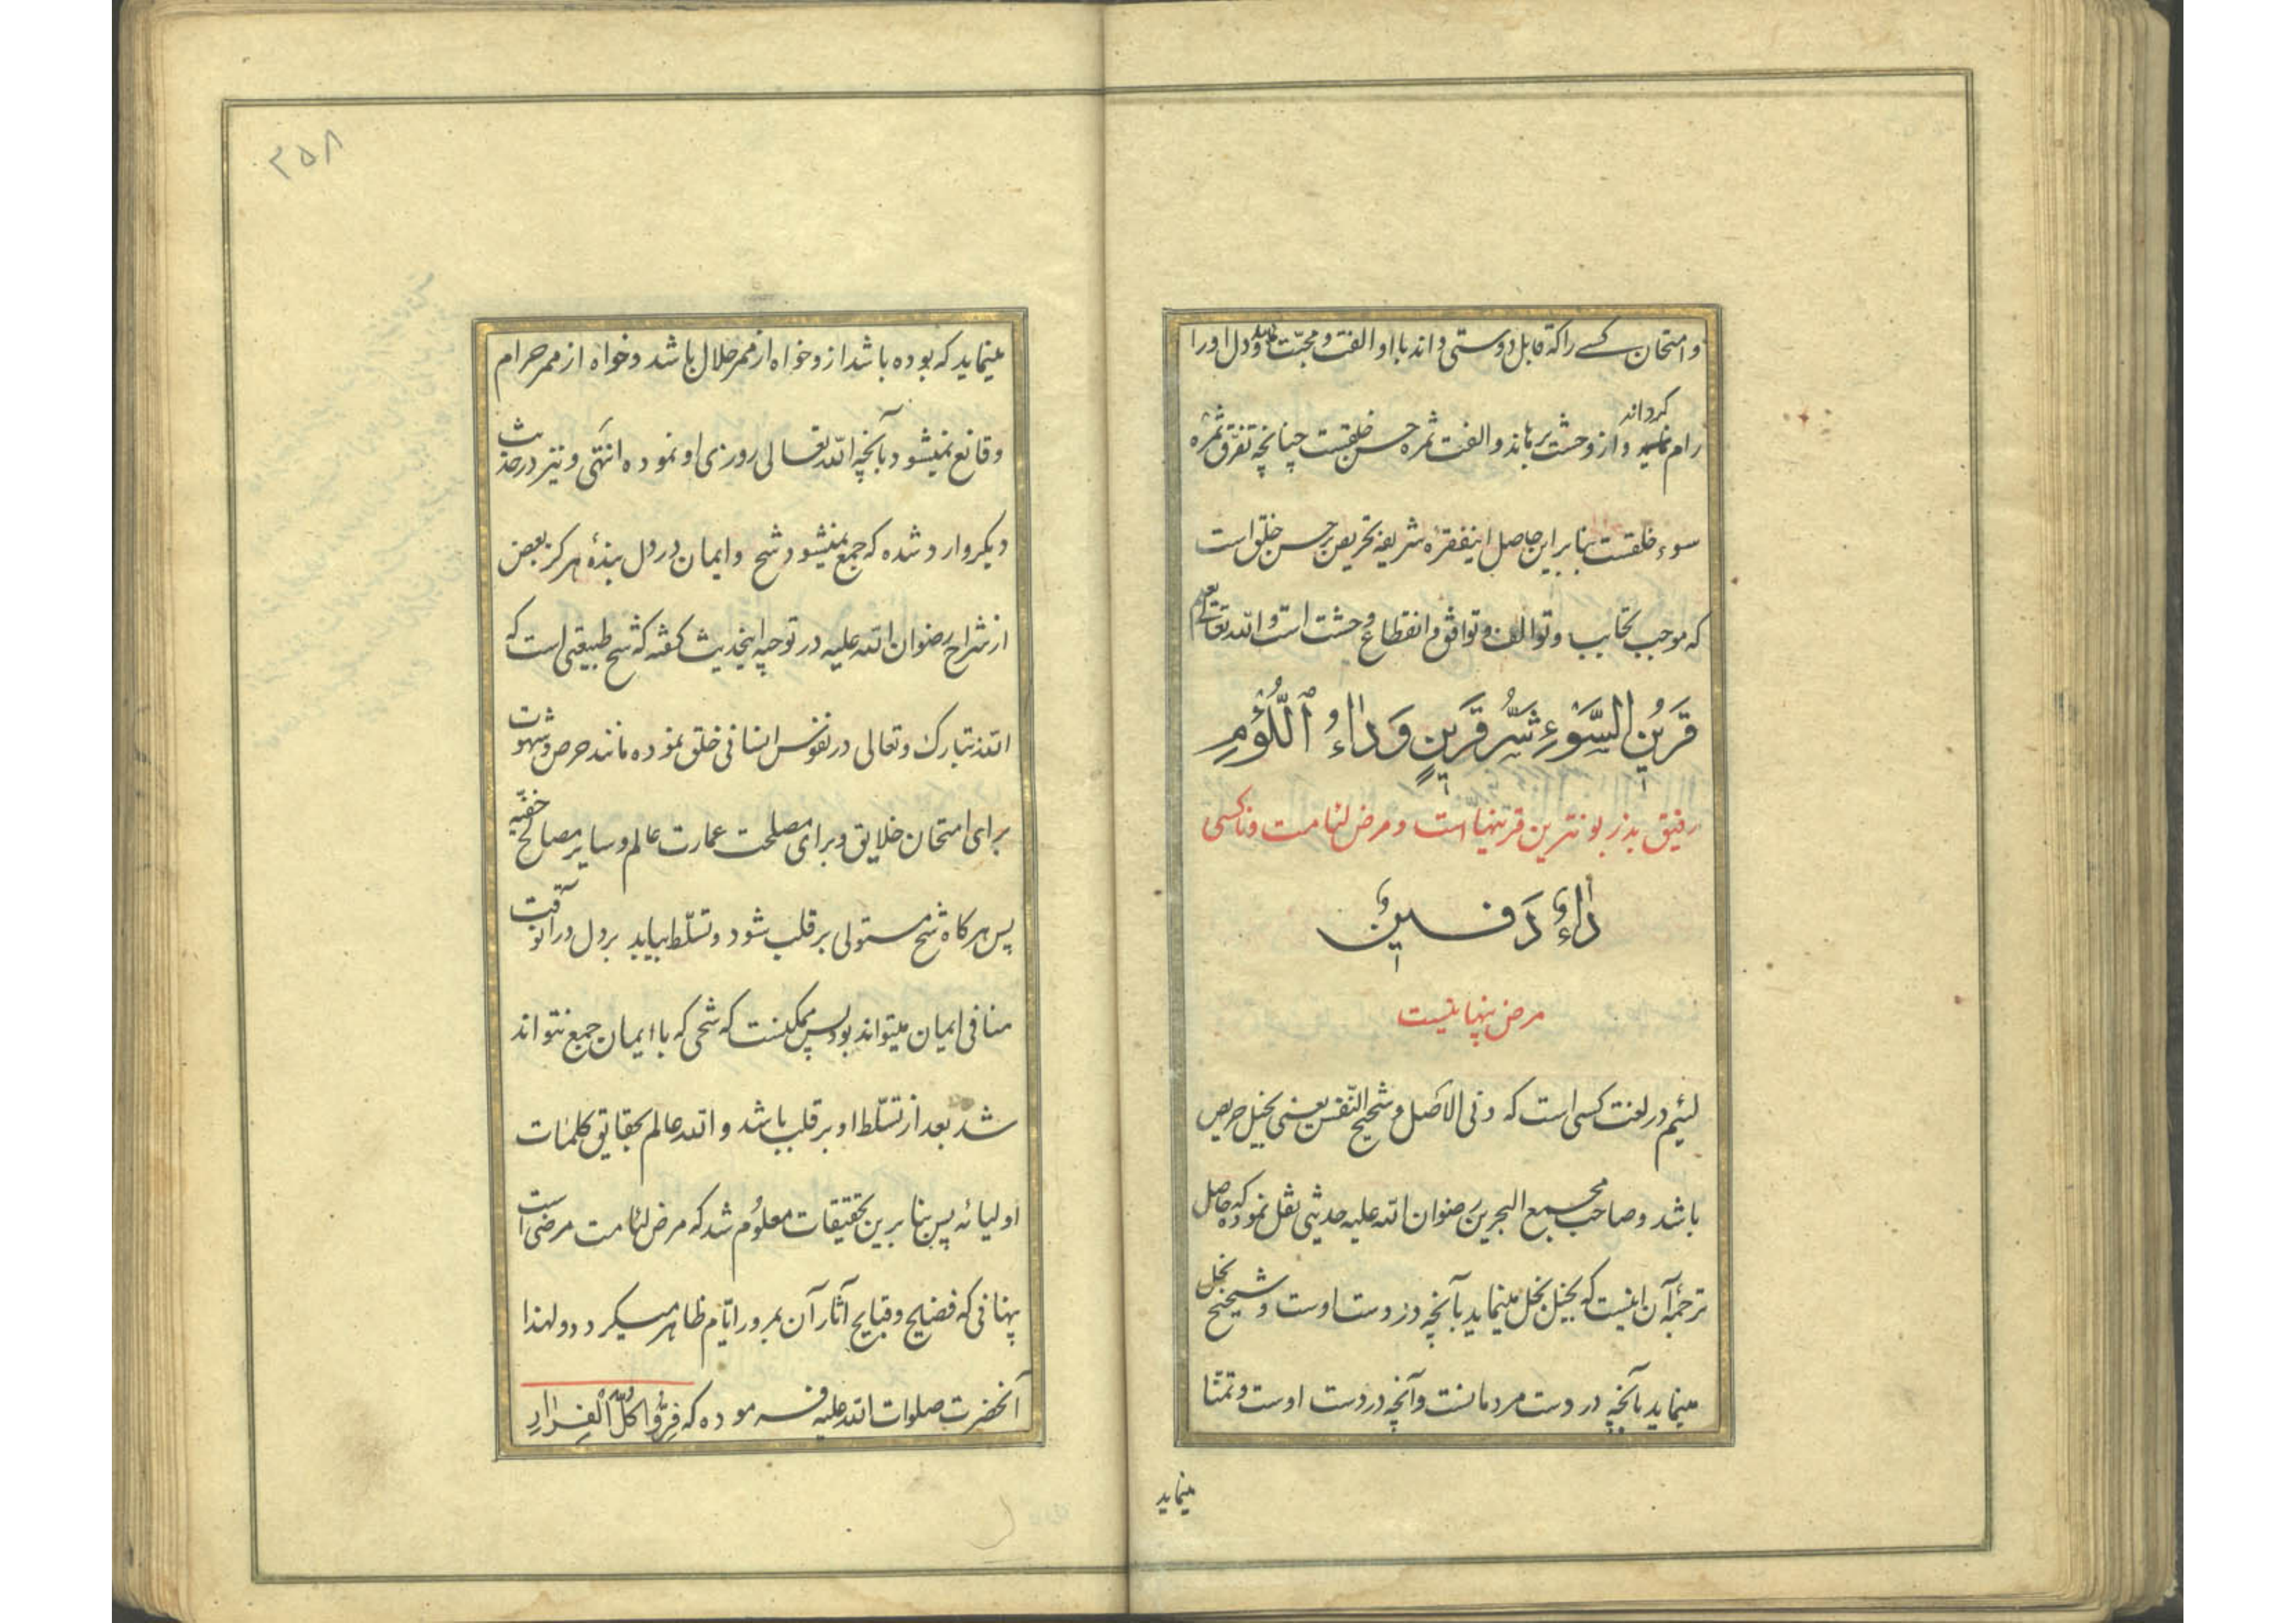 و امتحان کسے را که قابل دوستی داند با او الفت و محبّت نماید و دل اورا
کرداند
رام نماید و از وحشت برهاند و الفت ثمره حسن خلقست چنانچه تفرّق ثمره
سوء خلقست بنابراین حاصل اینفقره شریفه تحریص بر حسن خلق است
که موجب تحابب و توالف و توافق و انقطاع وحشت است و الله تعالی یعلم
قَرینُ السَّوْءِ شَرُّ قَرینٍ وَ داءُ اللُّؤْمِ
رفیق بد زبونترین قرینها است و مرض لئامت و ناکسی
داءٌ دَفینٌ
مرض پنهانیست
لئیم در لغت کسی است که دنی الاصل و شحیح النّفس یعنی بخیل حریص
باشد و صاحب مجمع البحرین رضوان الله علیه حدیثی نقل نموده که حاصل
ترجمهٔ آن اینست که بخیل بخل مینماید بآنچه در دست اوست و شحیح بخل
مینماید بآنچه در دست مردمانست و آنچه در دست اوست و تمنّا
مینماید
۲۵۸
مینماید که بوده باشد از و خواه از ممر حلال باشد و خواه از ممر حرام
و قانع نمیشود بآنچه الله تعالی روزی او نموده انتهی و نیز در حدیث
دیکر وارد شده که جمع نمیشود شح و ایمان در دل بندهٔ هرکز بعض
از شراح رضوان الله علیه در توجیه اینحدیث کفته که شح طبیعتی است که
الله تبارک و تعالی در نفوس انسانی خلق نموده مانند حرص و شهوت
برای امتحان خلایق و برای مصلحت عمارت عالم و سایر مصالح خفیّه
پس هرکاه شح مستولی بر قلب شود و تسلّط بیابد بر دل در آنوقت
منافی ایمان میتواند بود پس ممکنست که شحی که با ایمان جمع نتواند
شد بعد از تسلّط او بر قلب باشد و الله عالم بحقایق کلمات
اولیائه پس بنابرین تحقیقات معلوم شد که مرض لئامت مرضی است
پنهانی که فضایح و قبایح آثار آن بمرور ایّام ظاهر میکردد و لهذا
آنحضرت صلوات الله علیه فرموده که فِرُّوا کُلَّ الْفِرارِ